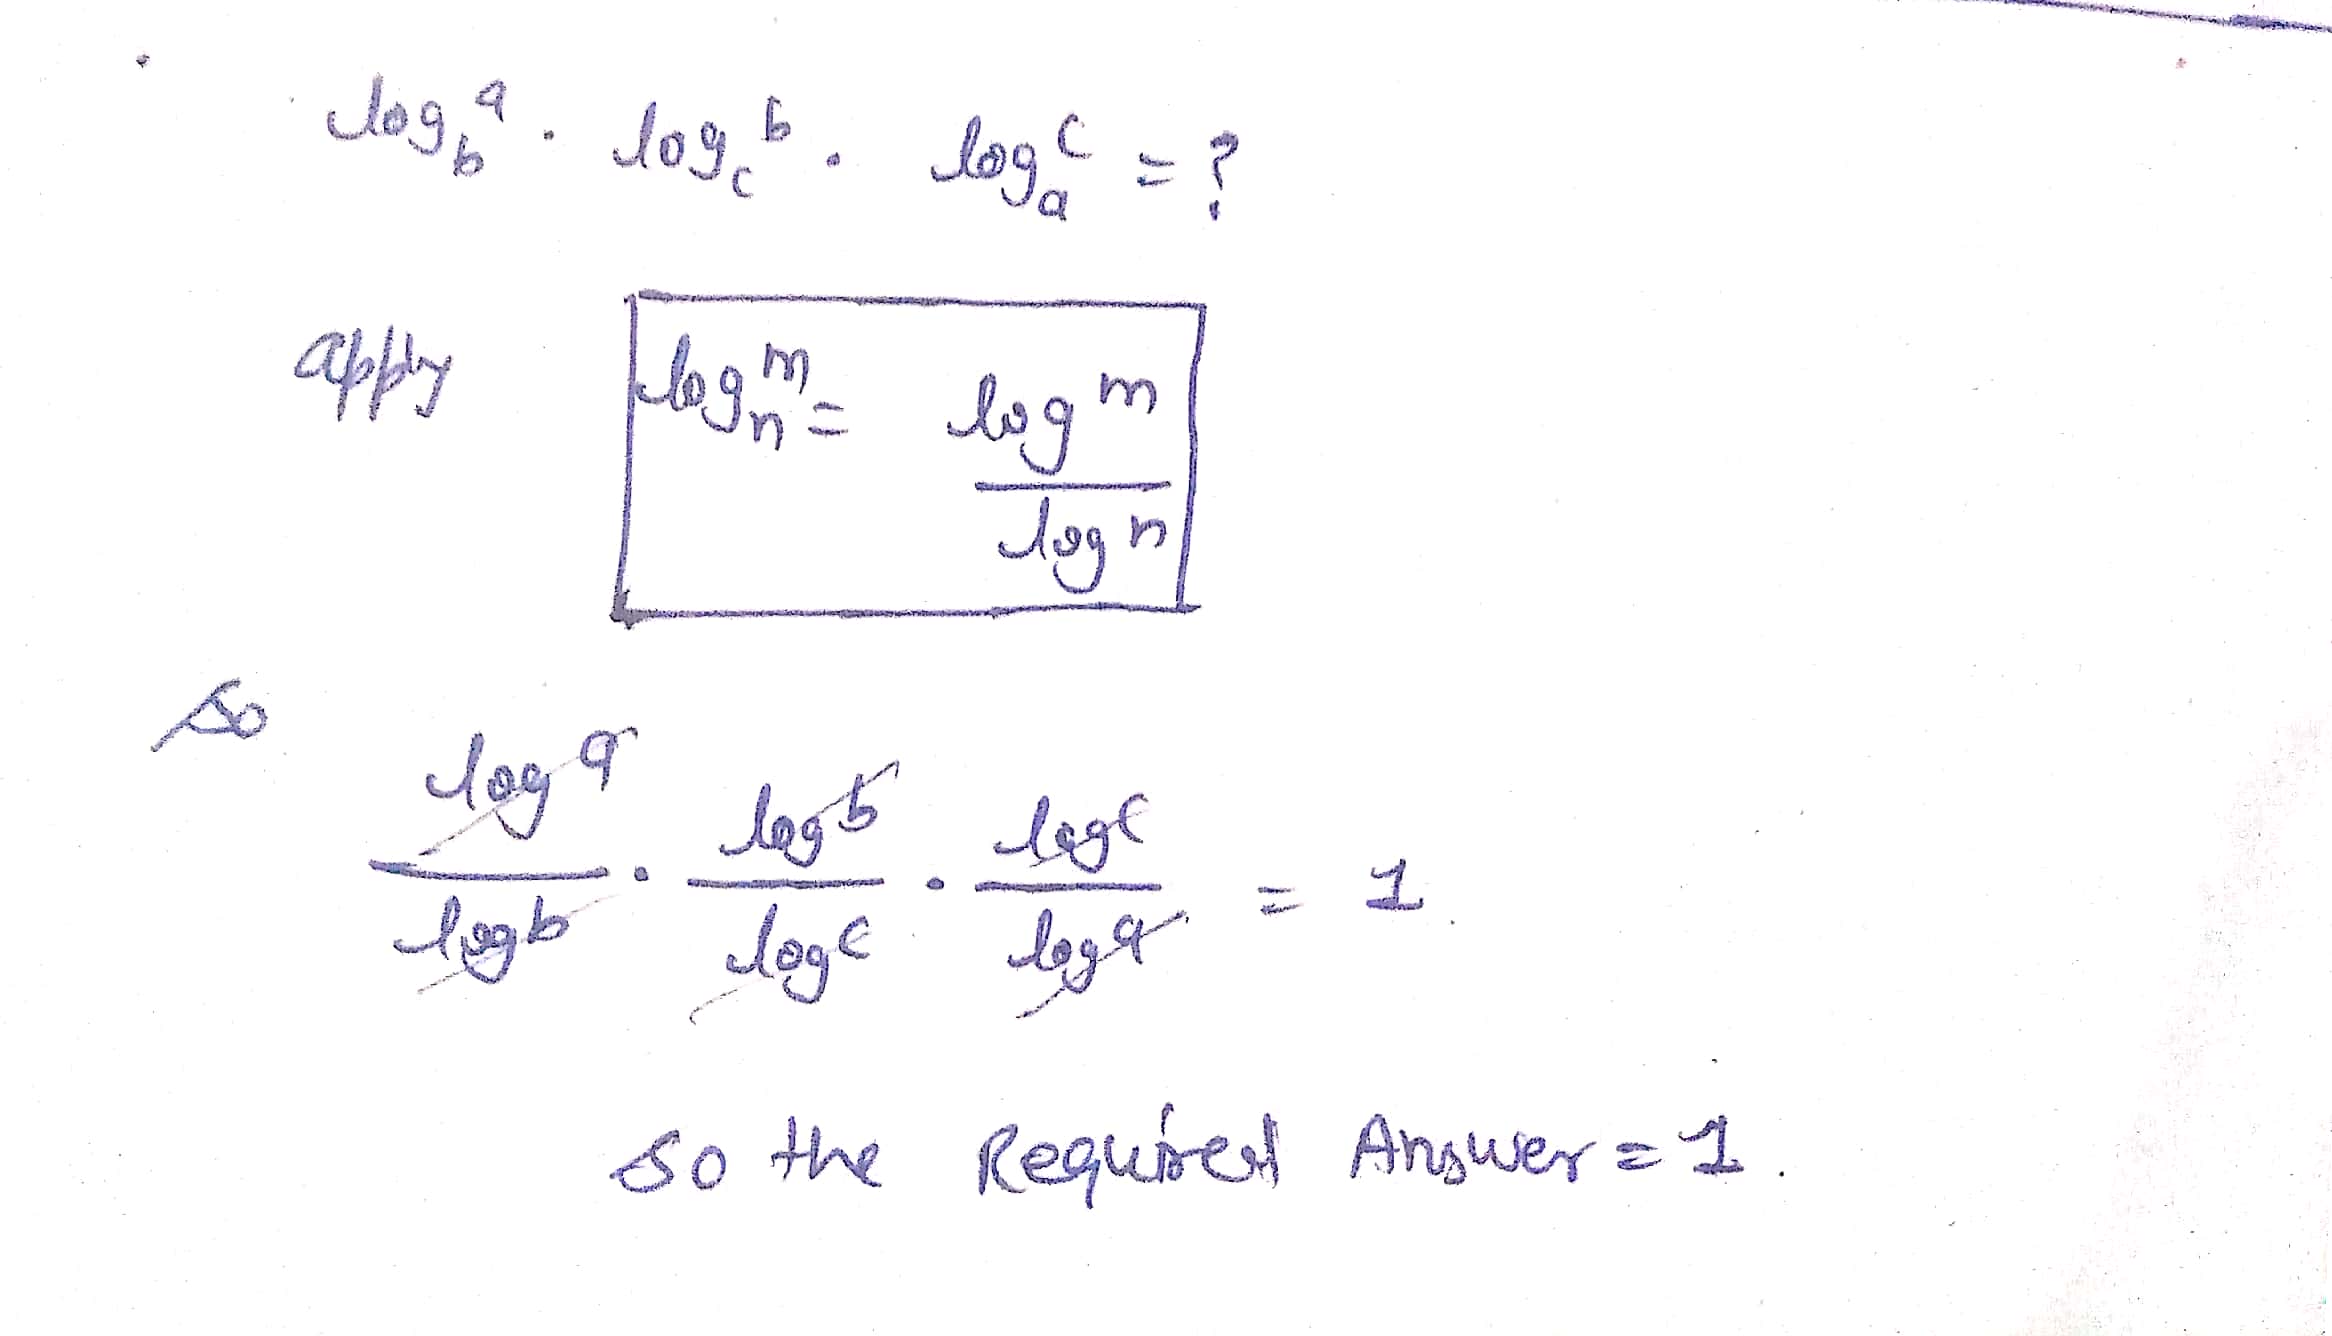 log_b^a . log_c^b . log_a^c = ?
apply log_n^m = log m / log n
so
log a / log b . log b / log c . log c / log a = 1.
so the Required Answer = 1.